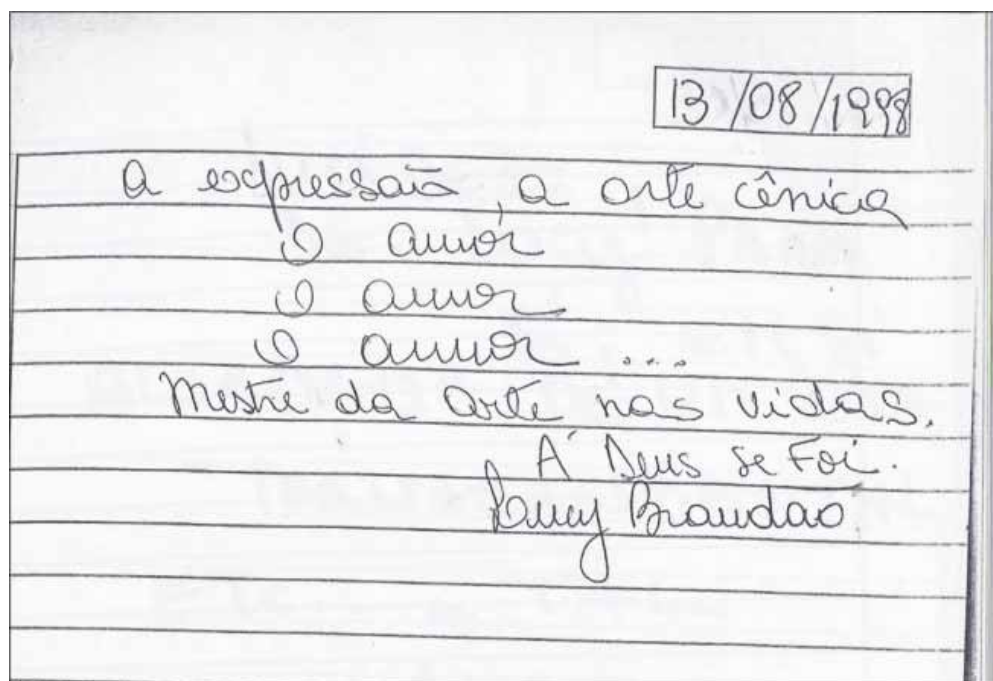 13/08/1998
a expressão, a arte cênica
O amor
O amor
O amor ...
Mestre da Arte nas vidas.
À Deus se Foi.
Brandão